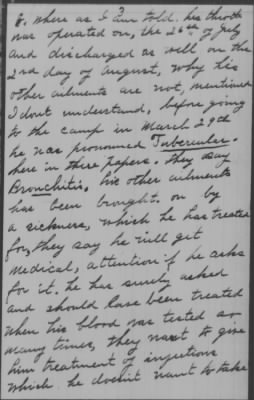 3
&. where as I am told. his throat
was operated on, the 26th of July
and discharged as well on the
2nd day of August, why his
other ailments are not, mentioned
I dont understand, before going
to the camp in March 29th
he was pronounced Tubercular.
here in these papers. they say
Bronchitis, his other ailments
has been brought. on by
a sickness, which he has treated
for, they say he will get
medical, attention if he asks
for it. he has surely asked
and should have been treated
when his blood was tested so
many times, they want to give
him treatment of injections
which he doesn't want to take